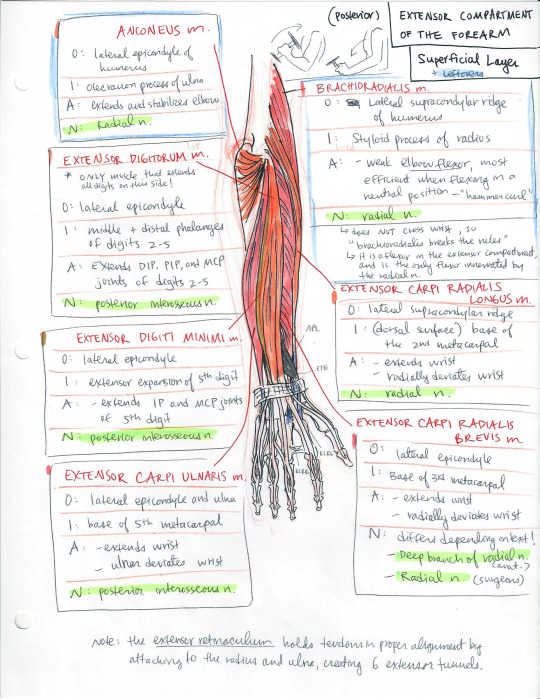 (posterior)
EXTENSOR COMPARTMENT
OF THE FOREARM
Superficial Layer
+ Leftovers
ANCONEUS m.
O: lateral epicondyle of
humerus
I: olecranon process of ulna
A: extends and stabilizes elbow
N: Radial n.
EXTENSOR DIGITORUM m.
* ONLY muscle that extends
all digits on this side!
O: lateral epicondyle
I: middle + distal phalanges
of digits 2-5
A: EXTENDS DIP, PIP, and MCP
joints of digits 2-5
N: posterior interosseous n.
EXTENSOR DIGITI MINIMI m.
O: lateral epicondyle
I: extensor expansion of 5th digit
A: - extends IP and MCP joints
of 5th digit
N: posterior interosseous n.
EXTENSOR CARPI ULNARIS m.
O: lateral epicondyle and ulna
I: base of 5th metacarpal
A: - extends wrist
- ulnar deviates wrist
N: posterior interosseous n.
BRACHIORADIALIS m.
O: Lateral supracondylar ridge
of humerus
I: Styloid process of radius
A: - weak elbow flexor, most
efficient when flexing in a
neutral position - "hammer curl"
N: radial n.
↳ does not cross wrist, so
"brachioradialis breaks the rules"
↳ it is a flexor in the extensor compartment,
and is the only flexor innervated by
the radial n.
EXTENSOR CARPI RADIALIS
LONGUS m.
O: lateral supracondylar ridge
I: (dorsal surface) base of
the 2nd metacarpal
A: - extends wrist
- radially deviates wrist
N: radial n.
EXTENSOR CARPI RADIALIS
BREVIS m.
O: lateral epicondyle
I: Base of 3rd metacarpal
A: - extends wrist
- radially deviates wrist
N: differs depending on text!
- Deep branch of radial n.
(anat.)
- Radial n. (surgeons)
APL
EPB
ECRL
ECRB
note: the extensor retinaculum holds tendons in proper alignment by
attaching to the radius and ulna, creating 6 extensor tunnels.